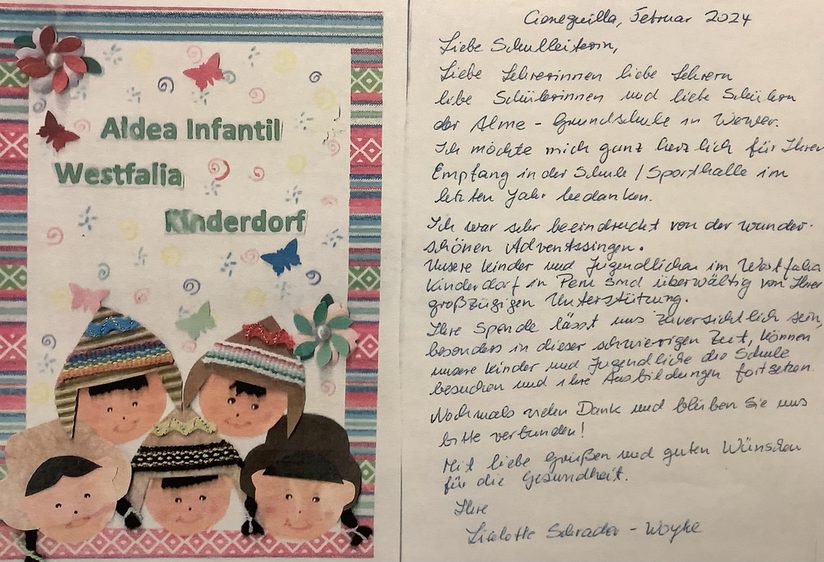 Aldea Infantil
Westfalia
Kinderdorf
Cieneguilla, Februar 2024
Liebe Schulleiterin,
Liebe Lehrerinnen liebe Lehrern
liebe Schülerinnen und liebe Schülern
der Alme - Grundschule in Wewer.
Ich möchte mich ganz herzlich für Ihren
Empfang in der Schule / Sporthalle im
letzten Jahr bedanken.
Ich war sehr beeindruckt von der wunder-
schönen Adventssingen.
Unsere Kinder und Jugendlichen im Westfalia
Kinderdorf in Peru sind überwältig von Ihrer
großzügigen Unterstützung.
Ihre Spende lässt uns zuversichtlich sein,
besonders in dieser schwierigen Zeit, können
unsere Kinder und Jugendliche die Schule
besuchen und ihre Ausbildungen fortsetzen.
Nochmals vielen Dank und bleiben Sie uns
bitte verbunden!
Mit liebe grüßen und guten Wünschen
für die Gesundheit.
Ihre
Liselotte Schrader - Woyke